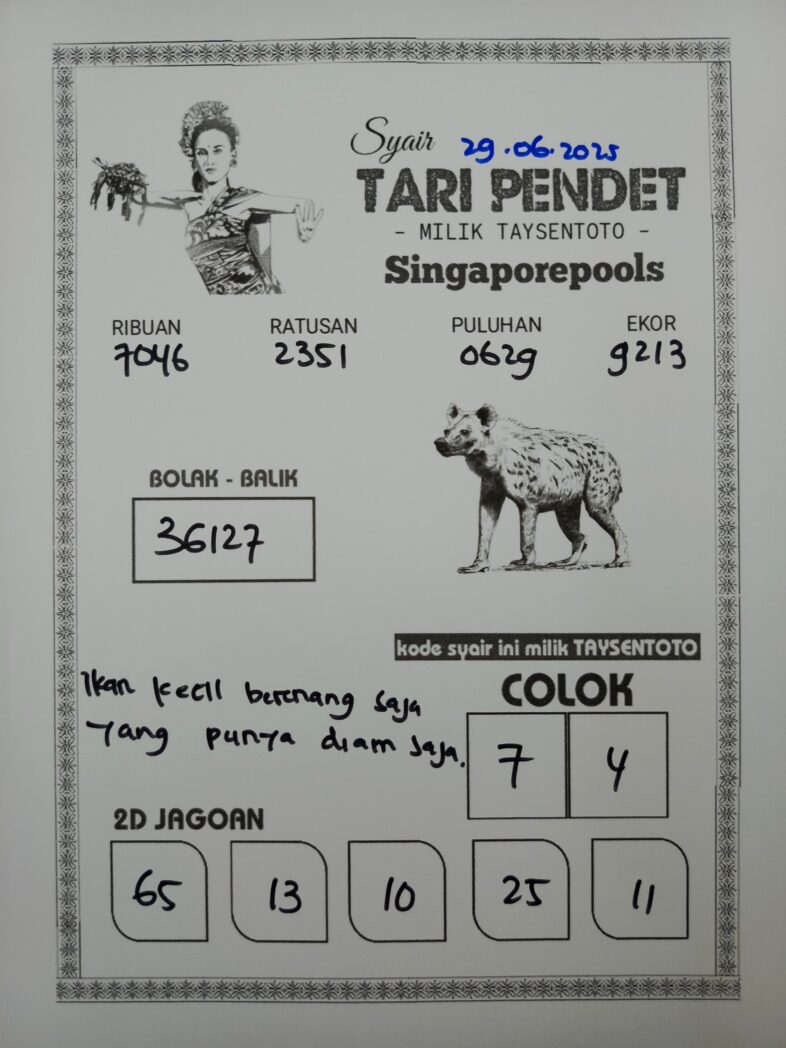 Syair 29.06.2025
TARI PENDET
- MILIK TAYSENTOTO -
Singaporepools
RIBUAN RATUSAN PULUHAN EKOR
7046 2351 0629 9213
BOLAK - BALIK
36127
kode syair ini milik TAYSENTOTO
Ikan kecil berenang saja
Yang punya diam saja.
COLOK
7 4
2D JAGOAN
65 13 10 25 11